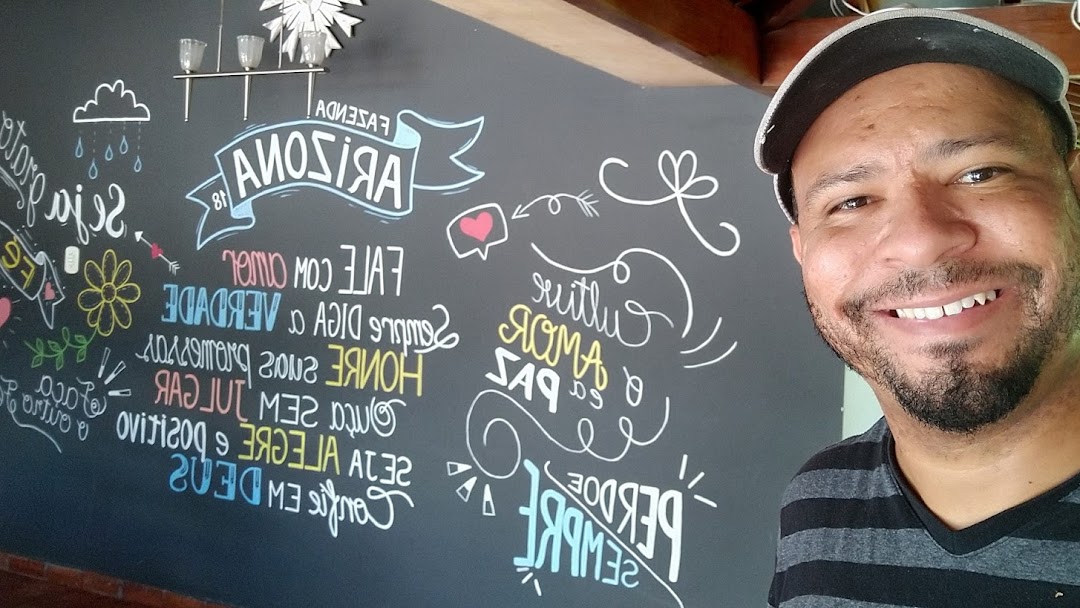 Cultive
o AMOR
e a PAZ
PERDOE
SEMPRE
FAZENDA
ARiZONA
18
FALE com amor
Sempre DIGA a VERDADE
HONRE suas promessas.
Ouça SEM JULGAR
SEJA ALEGRE e positivo
Confie EM DEUS
Seja grato
FÉ
Faça
o outro